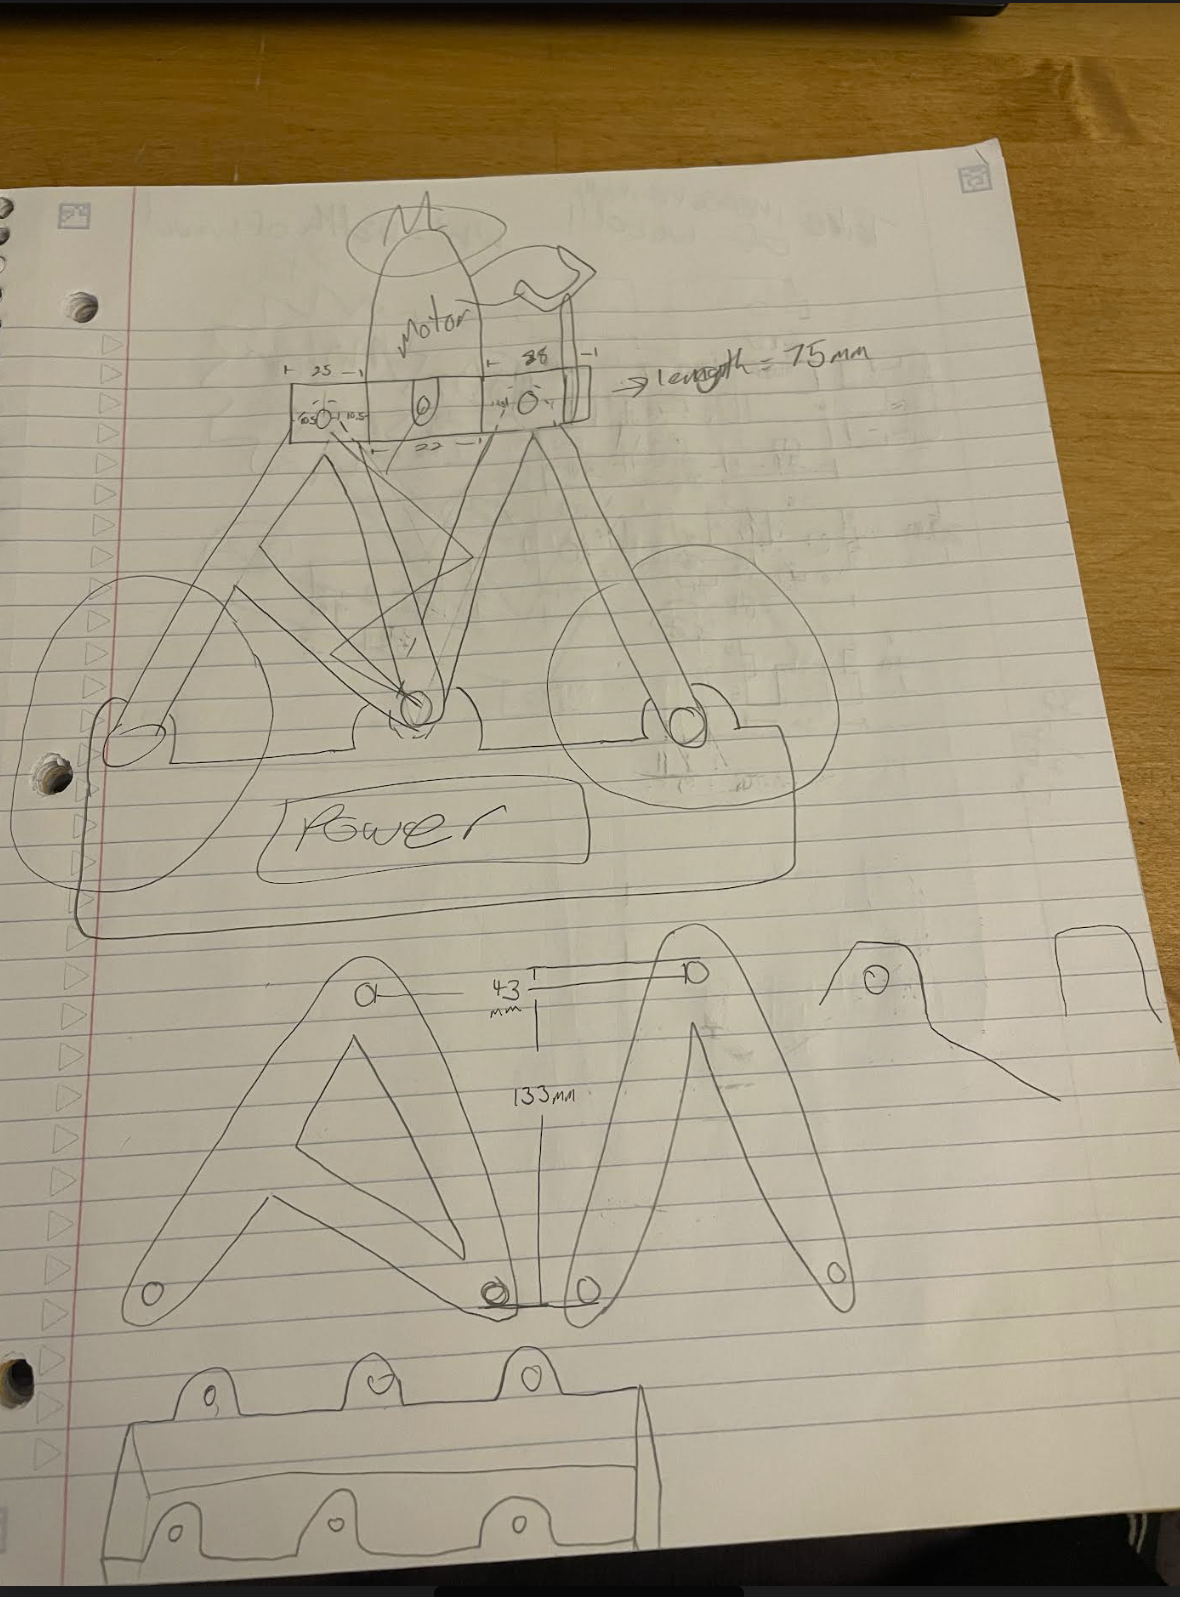 Motor
25
28
→ length = 75mm
10.5
22
Power
43
mm
133mm